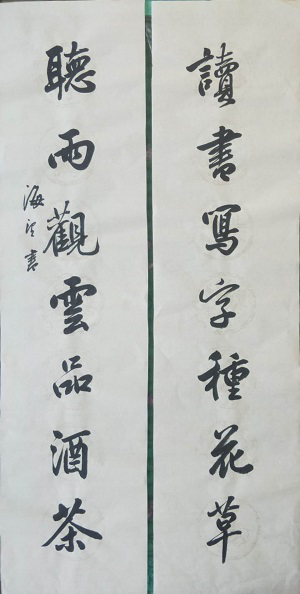 讀書寫字種花草
聽雨觀雲品酒茶
海
書